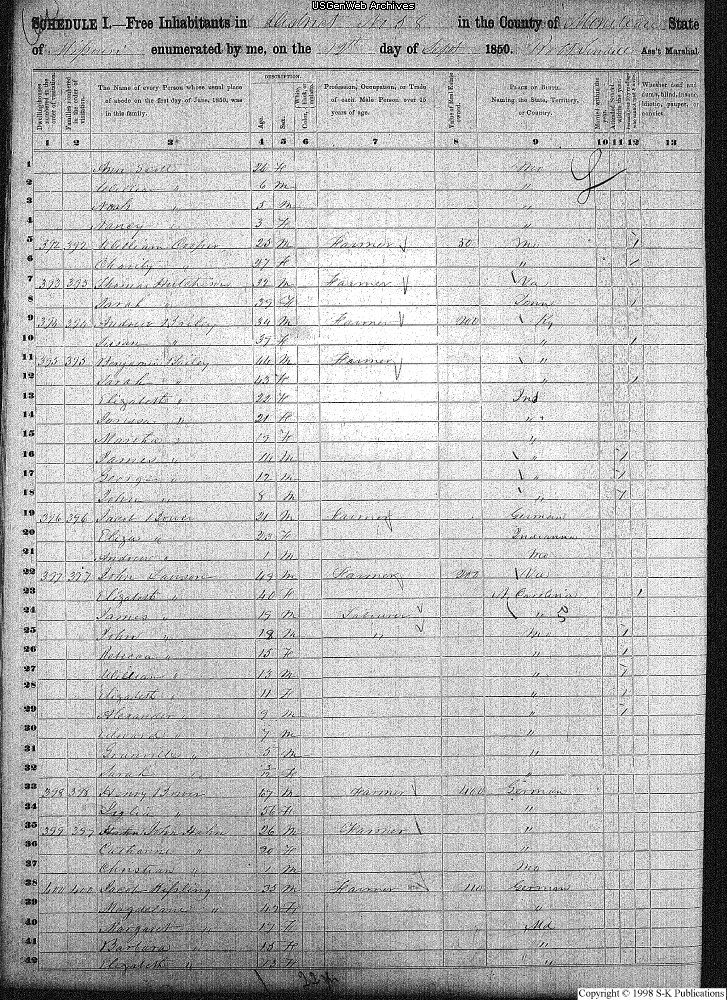 USGenWeb Archives
SCHEDULE I.—Free Inhabitants in District No 58 in the County of Moniteau State
of Missouri enumerated by me, on the 12th day of Sept 1850. Ass't Marshal.
Dwelling-houses numbered in the order of visitation.
Families numbered in the order of visitation.
The Name of every Person whose usual place of abode on the first day of June, 1850, was in this family.
DESCRIPTION.
Age.
Sex.
White, black, or mulatto.
Profession, Occupation, or Trade of each Male Person over 15 years of age.
Value of Real Estate owned.
PLACE OF BIRTH. Naming the State, Territory, or Country.
Married within the year.
Whether deaf and dumb, blind, insane, idiotic, pauper, or convict.
1 2 3 4 5 6 7 8 9 10 11 12 13
1 Ann 26 F Mo
2 William " 6 M "
3 Noah " 5 M "
4 Nancy " 3 F "
5 392 392 William Cooper 25 M Farmer 50 Mo 1
6 Charity " 27 F " 1
7 393 393 Thomas 32 M Farmer Va
8 Sarah " 39 F Tenn 1
9 394 394 Andrew Briley 34 M Farmer 200 Ky
10 Susan " 37 F " 1
11 395 395 Benjamin Briley 44 M Farmer "
12 Sarah " 43 F " 1
13 Elizabeth " 22 F Ind
14 21 F "
15 Martha " 17 F "
16 James " 14 M " 1
17 George " 12 M " 1
18 John " 8 M " 1
19 396 396 Jacob Bower 21 M Farmer German
20 Eliza " 23 F Indianna
21 Andrew " 1 M Mo
22 397 397 John Lawson 49 M Farmer 200 Va
23 Elizabeth " 40 F N. Carolina 1
24 James " 19 M Labourer "
25 John " 18 M " Mo 1
26 Rebecca " 15 F " 1
27 William " 13 M " 1
28 Elizabeth " 11 F " 1
29 Alexander " 9 M " 1
30 Edward " 7 M "
31 Granville " 5 M "
32 Sarah " F
33 398 398 Henry Bower 67 M Farmer 400 German
34 56 F "
35 399 399 John Hahn 26 M Farmer "
36 Catharine " 20 F "
37 Christian " 1 M Mo
38 400 400 Jacob Kipling 35 M Farmer 110 German
39 Magdalane " 47 F "
40 Margaret " 17 F Md
41 Barbara " 15 F "
42 Elizabeth " 13 F "
Copyright © 1998 S-K Publications